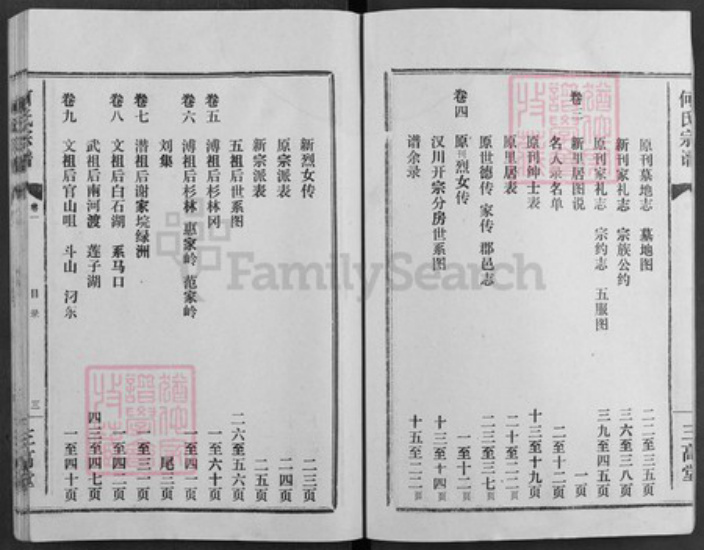 何氏宗谱
三高堂
原刊墓地志 墓地图 二二至三五页
新刊家礼志 宗族公约 三六至三八页
原刊家礼志 宗约志 五服图 三九至四五页
卷三 新里居图说 一页
名人录名单 二至十二页
原刊绅士表 十三至十九页
原里居表 二十至二二页
原世德传 家传 郡邑志 二三至三七页
卷四 原刊烈女传 一至十二页
汉川开宗分房世系图 十三至十四页
谱余录 十五至二二页
新烈女传 二三页
原宗派表 二四页
新宗派表 二五页
五祖后世系图 二六至五六页
卷五 溥祖后杉林冈 一至六十页
卷六 溥祖后杉林 惠家岭 范家岭 一至四一页
刘集 尾三页
卷七 潜祖后谢家垸绿洲 一至三一页
卷八 文祖后白石湖 系马口 一至四二页
武祖后南河渡 莲子湖 四三至四七页
卷九 文祖后官山咀 斗山 汈东 一至四十页
何氏宗谱
卷一
目录
三
三高堂
FamilySearch